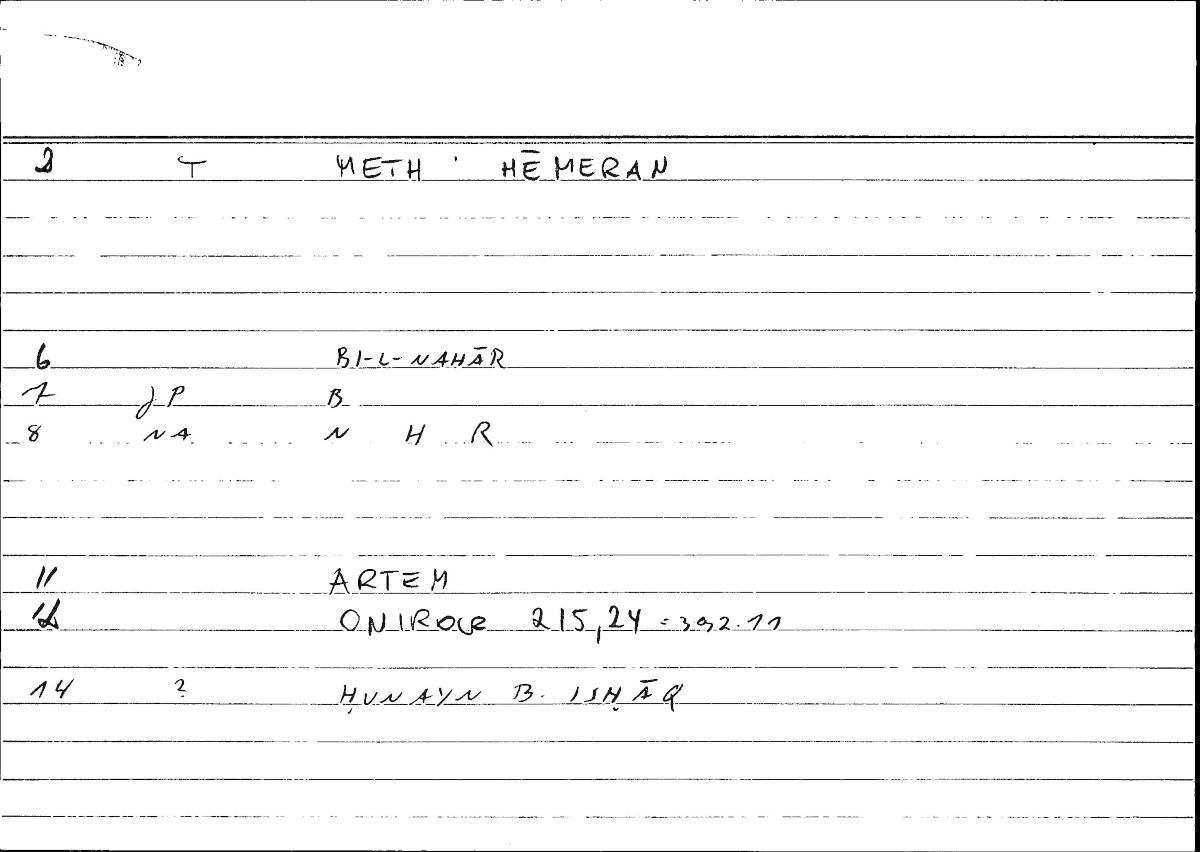 2 T METH ' HĒMERAN
6 BI-L-NAHĀR
7 JP B
8 NA N H R
11 ARTEM
12 ONIROCR 215,24 = 392.11
14 ? ḤUNAYN B. ISḤĀQ